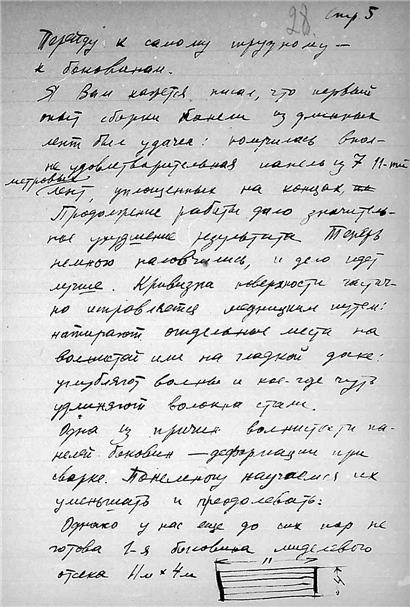 28. Стр 5
Перейду к самому трудному —
к боковинам.
Я Вам кажется писал, что первый
опыт сборки панели из длинных
лент был удачен: получилась впол-
не удовлетворительная панель из 7 11-ти
метровых
лент, уплощенных на концах.
Продолжение работы дало значитель-
ное ухудшение результата Теперь
немного наловчились, и дело идет
лучше. Кривизна поверхности частич-
но исправляется медницким путем:
натирают отдельные места на
волнистой или на гладкой доке:
углубляют волны и кое-где чуть
удлиняют волокна стали.
Одна из причин волнистости па-
нелей боковин — деформации при
сварке. Понемногу научаемся их
уменьшать и преодолевать:
Однако у нас еще до сих пор не
готова 1-я боковина миделевого
отсека 11м × 4м
11
4